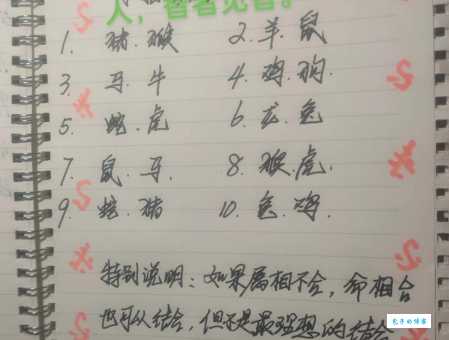 人，智者见智。
1. 猪.猴 2.羊.鼠
3. 马.牛 4.鸡.狗.
5. 蛇.虎 6.龙.兔
7. 鼠.马. 8.猴.虎.
9. 蛇.猪 10.兔.鸡.
特别说明：如果属相不合，命相合
也可以结合，但不是最理想的结合